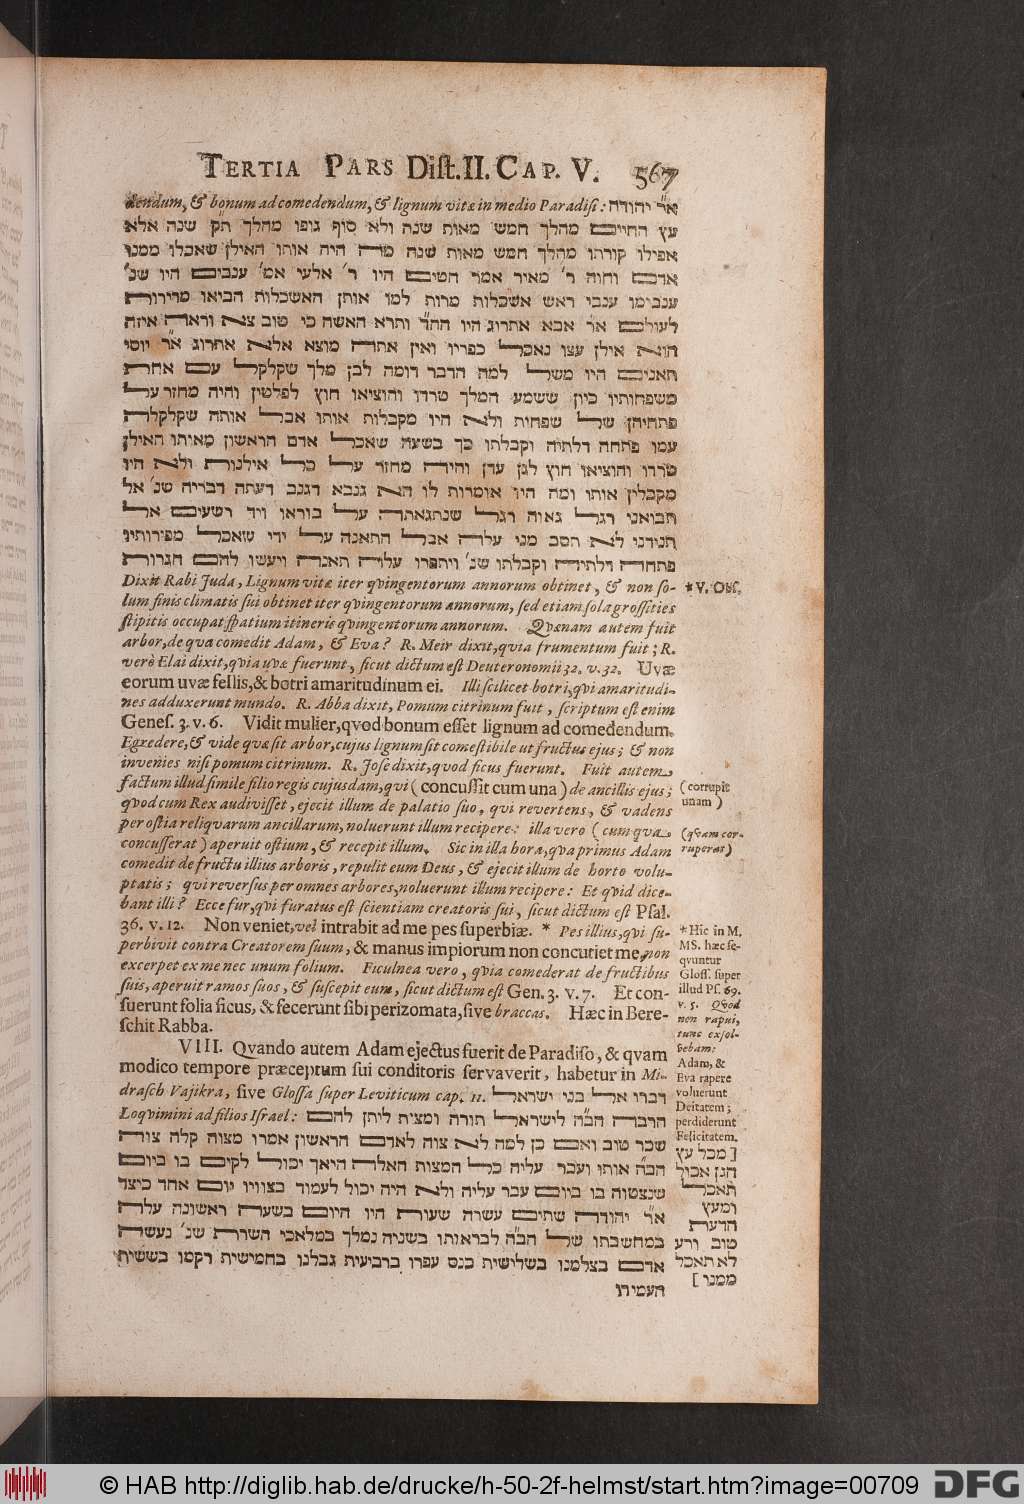 TERTIA PARS Dist. II. CAP. V. 567
dendum, & bonum ad comedendum, & lignum vitæ in medio Paradisi: א״ר יהודה
עץ החיים מהלך חמש מאות שנה ולא סוף גופו מהלך ת״ק שנה אלא
אפילו קורתו מהלך חמש מאות שנה מה היה אותו האילן שאכלו ממנו
אדם וחוה ר׳ מאיר אמר חטים היו ר׳ אלעי אמ׳ ענבים היו שנ׳
ענבימו ענבי ראש אשכלות מרות למו אותן האשכלות הביאו מרירות
לעולם א״ר אבא אתרוג היו הה״ד ותרא האשה כי טוב צא וראה איזה
הוא אילן עצו נאכל כפריו ואין אתה מוצא אלא אתרוג א״ר יוסי
תאנים היו משל למה הדבר דומה לבן מלך שקלקל עם אחת
משפחותיו כיון ששמע המלך טרדו והוציאו חוץ לפלטין והיה מחזר על
פתחיהן של שפחות ולא היו מקבלות אותו אבל אותה שקלקלה
עמו פתחה דלתיה וקבלתו כך בשעה שאכל אדם הראשון מאותו האילן
טרדו והוציאו חוץ לגן עדן והיה מחזר על כל אילנות ולא היו
מקבלין אותו ומה היו אומרות לו הא גנבא דגנב דעתה דבריה שנ׳ אל
תבואני רגל גאוה רגל שנתגאתה על בוראו ויד רשעים אל
תנידני לא תסב מני עלה אבל התאנה על ידי שאכל מפירותיו
פתחה דלתיה וקבלתו שנ׳ ויתפרו עלה תאנה ויעשו להם חגרות
Dixit Rabi Juda, Lignum vitæ iter qvingentorum annorum obtinet, & non so-
lum finis climatis sui obtinet iter qvingentorum annorum, sed etiam sola grossities
stipitis occupat spatium itineris qvingentorum annorum. Qvænam autem fuit
arbor, de qva comedit Adam, & Eva? R. Meir dixit, qvia frumentum fuit; R.
verò Elai dixit, qvia uvæ fuerunt, sicut dictum est Deuteronomii 32. v. 32. Uvæ
eorum uvæ fellis, & botri amaritudinum ei. Illi scilicet botri, qvi amaritudi-
nes adduxerunt mundo. R. Abba dixit, Pomum citrinum fuit, scriptum est enim
Genes. 3. v. 6. Vidit mulier, qvod bonum esset lignum ad comedendum.
Egredere, & vide qvæ sit arbor, cujus lignum sit comestibile ut fructus ejus; & non
invenies nisi pomum citrinum. R. Jose dixit, qvod ficus fuerunt. Fuit autem
factum illud simile filio regis cujusdam, qvi (concussit cum una) de ancillis ejus;
qvod cum Rex audivisset, ejecit illum de palatio suo, qvi revertens, & vadens
per ostia reliqvarum ancillarum, noluerunt illum recipere: illa vero (cum qva
concusserat) aperuit ostium, & recepit illum. Sic in illa hora, qva primus Adam
comedit de fructu illius arboris, repulit eum Deus, & ejecit illum de horto volu-
ptatis; qvi reversus per omnes arbores, noluerunt illum recipere: Et qvid dice-
bant illi? Ecce fur, qvi furatus est scientiam creatoris sui, sicut dictum est Psal.
36. v. 12. Non veniet, vel intrabit ad me pes superbiæ. * Pes illius, qvi su-
perbivit contra Creatorem suum, & manus impiorum non concutiet me, non
excerpet ex me nec unum folium. Ficulnea vero, qvia comederat de fructibus
suis, aperuit ramos suos, & suscepit eum, sicut dictum est Gen. 3. v. 7. Et con-
suerunt folia ficus, & fecerunt sibi perizomata, sive braccas. Hæc in Bere-
schit Rabba.
VIII. Qvando autem Adam ejectus fuerit de Paradiso, & qvam
modico tempore præceptum sui conditoris servaverit, habetur in Mi-
drasch Vajikra, sive Glossa super Leviticum cap. 11. דברו אל בני ישראל
Loqvimini ad filios Israel: הרבה הב״ה לישראל תורה ומצית ליתן להם
שכר טוב ואם כן למה לא צוה לאדם הראשון אמרו מצוה קלה צוה
הב״ה אותו ועבר עליה כל המצות האלה היאך יכול לקים בו ביום
שנצטוה בו ביום עבר עליה ולא היה יכול לעמוד בצוויו יום אחד כיצד
א״ר יהודה שתים עשרה שעות היו היום בשעה ראשונה עלה
במחשבתו של הב״ה לבראותו בשניה נמלך במלאכי השרת שנ׳ נעשה
אדם בצלמנו בשלישית כנס עפרו ברביעית גבלנו בחמישית רקמו בששית
העמידו
* V. Obs.
(corrupit
unam)
(qvam cor-
ruperat)
* Hic in M.
MS. hæc se-
qvuntur
Gloss. super
illud Ps. 69.
v. 5. Qvod
non rapui,
tunc exsol-
vebam:
Adam, &
Eva rapere
voluerunt
Deitatem;
perdiderunt
Felicitatem.
[מכל עץ
הגן אכול
תאכל
ומעץ
הדעת
טוב ורע
לא תאכל
ממנו]
© HAB http://diglib.hab.de/drucke/h-50-2f-helmst/start.htm?image=00709 DFG